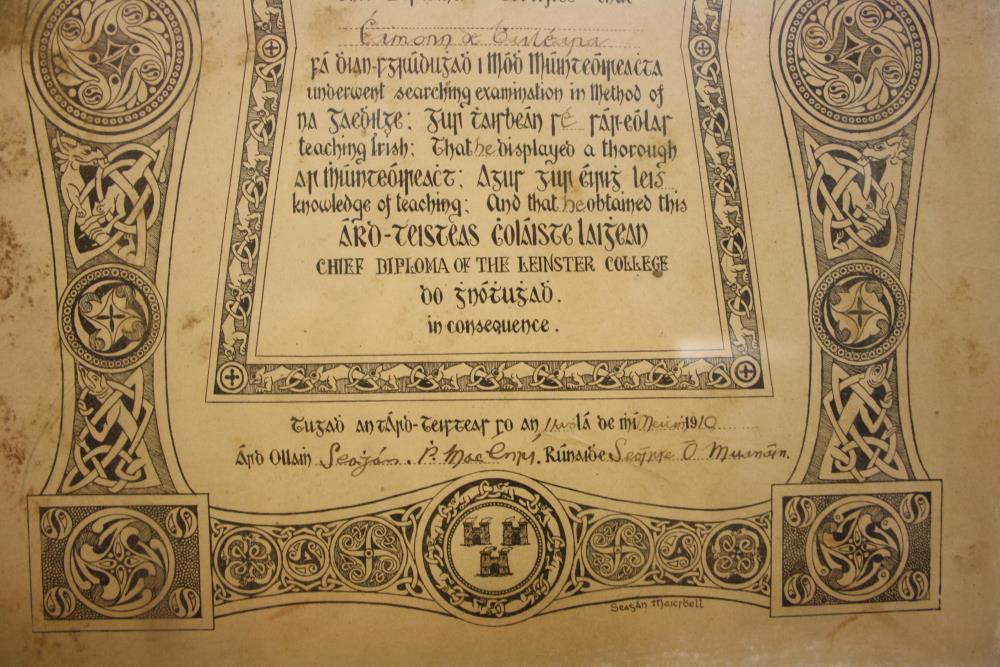 Diploma Certifies that
Éamonn
fá ḋian-sgrúduġaḋ i Móḋ Múinteóireaċta
underwent searching examination in Method of
na Gaeḋilge: Gur ṫaisbeán sé sár-eólas
teaching Irish: That he displayed a thorough
ar ṁúinteóireaċt: Agus gur éiriġ leis
knowledge of teaching: And that he obtained this
ÁRD-TEISTEAS ĊOLÁISTE LAIĠEAN
CHIEF DIPLOMA OF THE LEINSTER COLLEGE
do ġnóṫuġaḋ.
in consequence.
Tugaḋ an tÁrd-Teisteas so an lá de ṁí 1910
Árd Ollaṁ Seaġán P. Mac Énrí. Rúnaiḋe Seóirse Ó
Seaġán Maicsbell